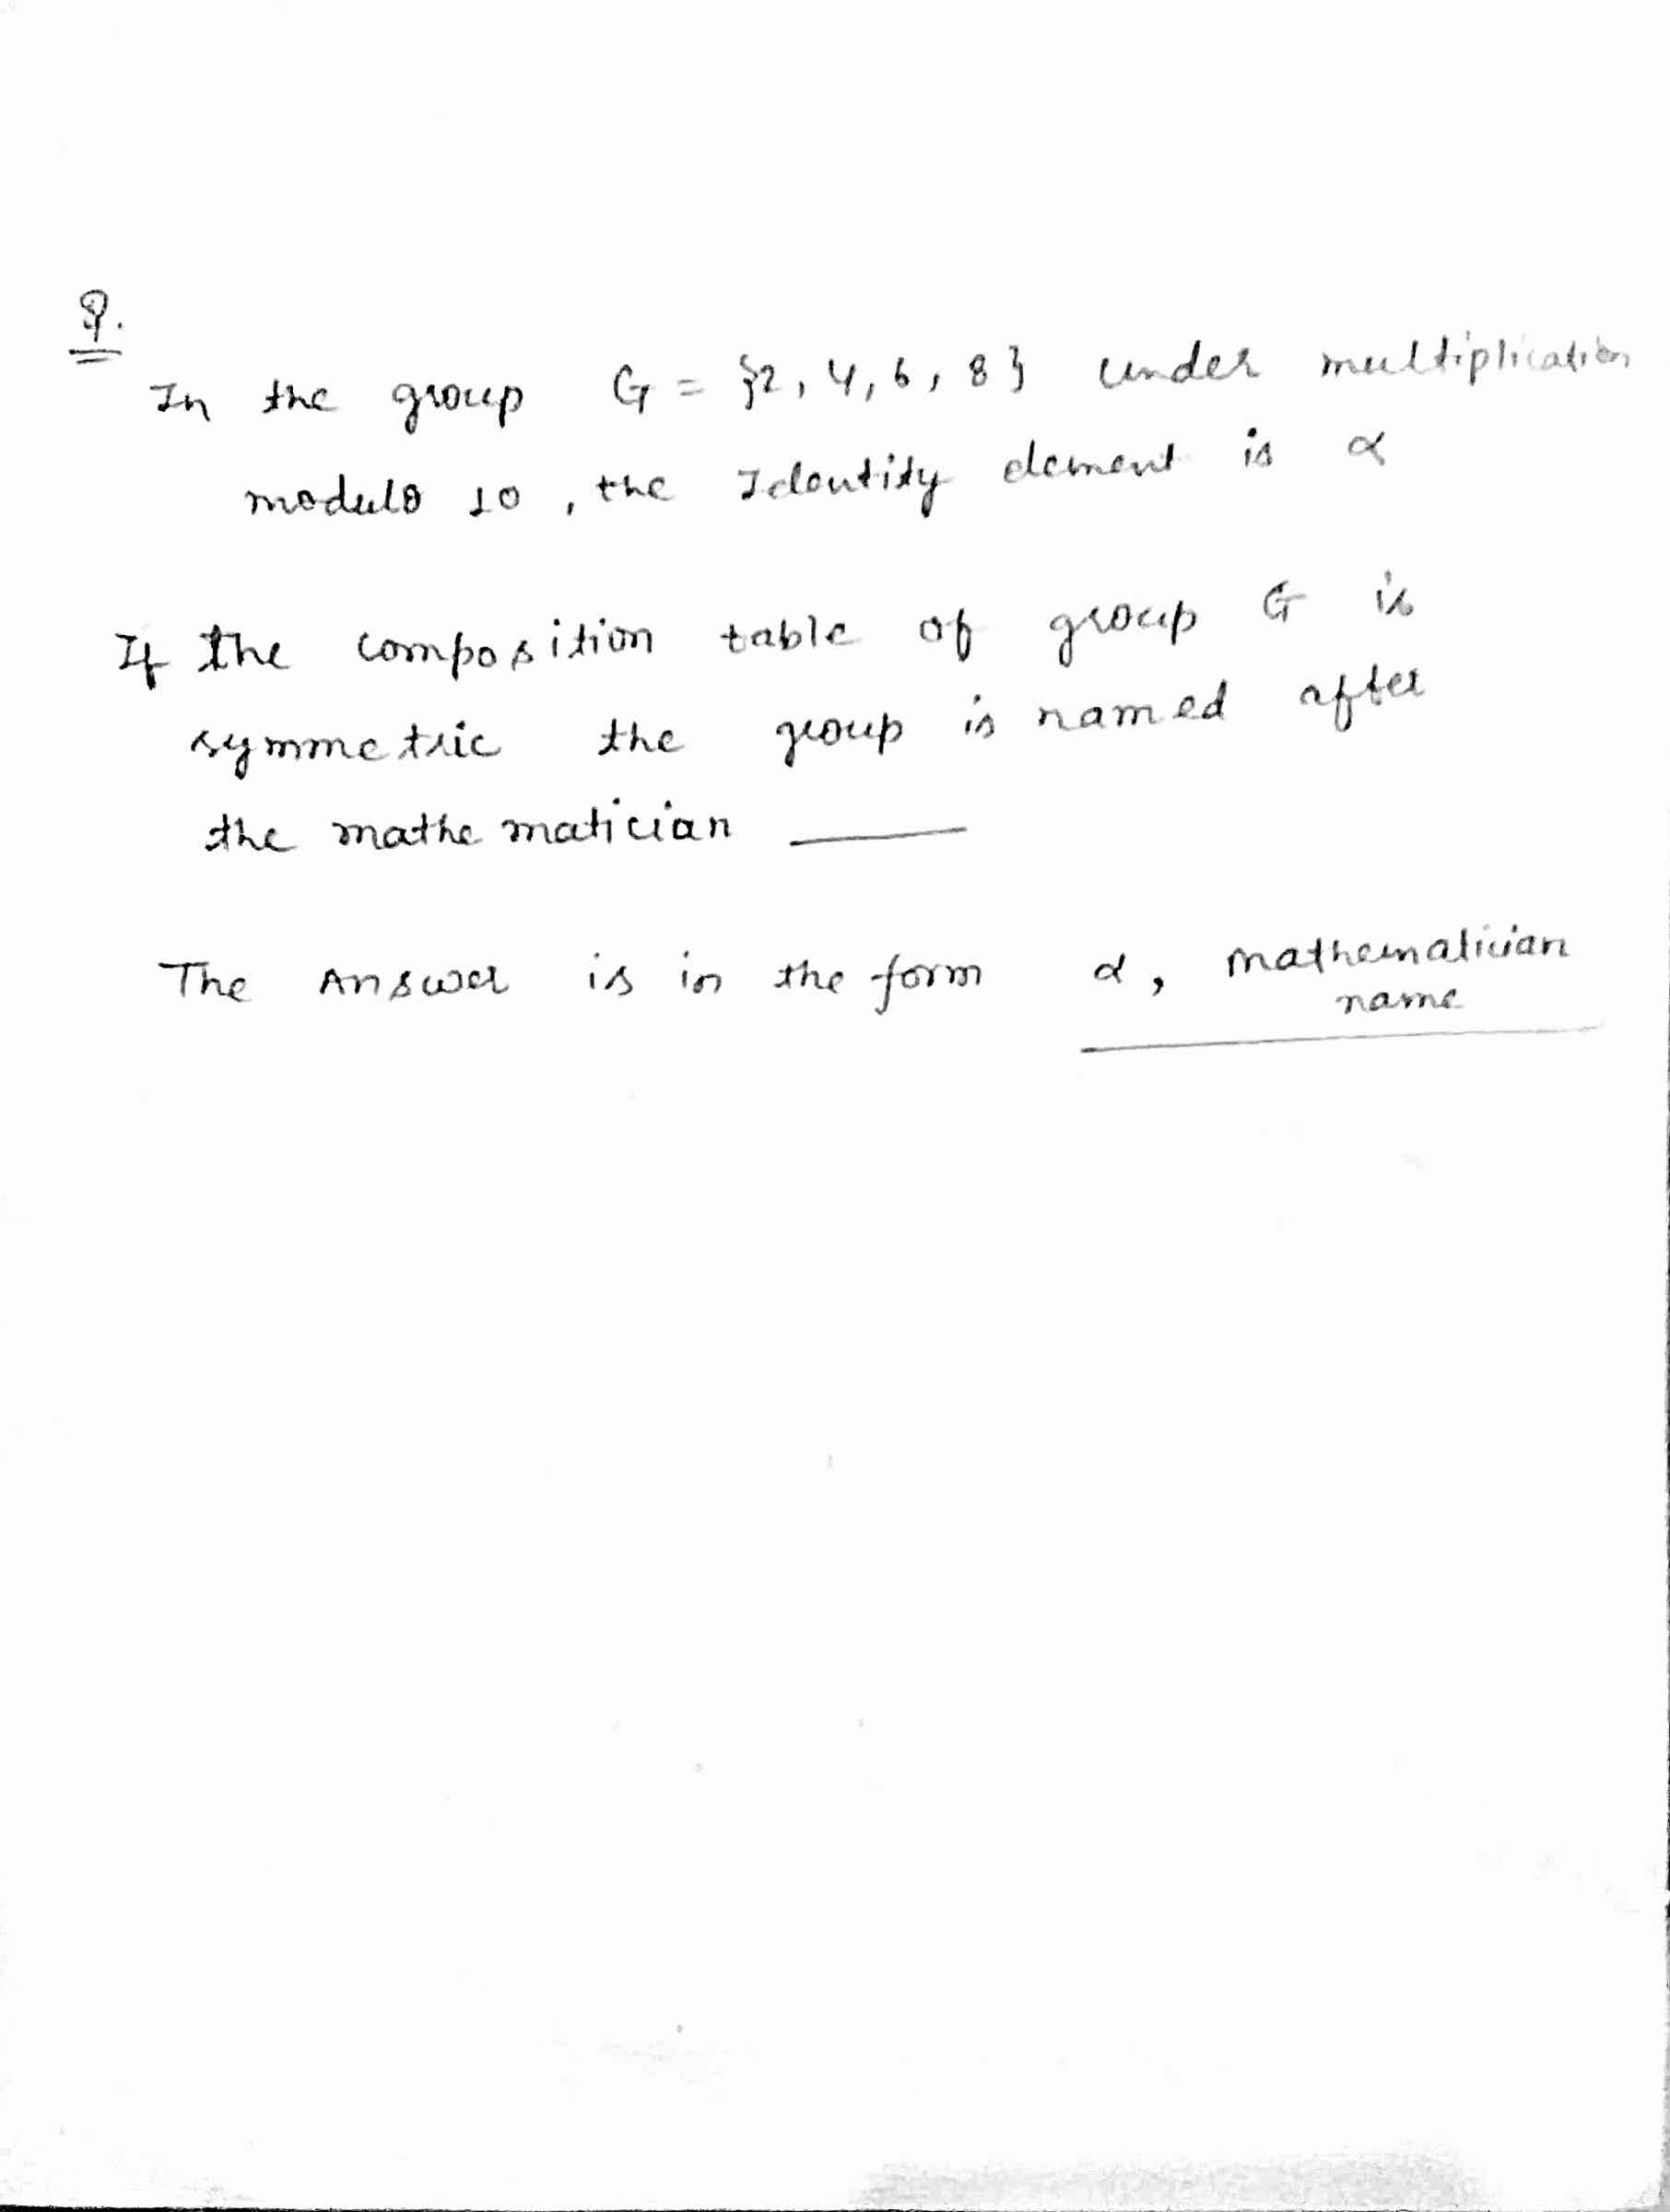 Q.
In the group G = {2, 4, 6, 8} under multiplication
modulo 10, the Identity element is α
If the composition table of group G is
symmetric the group is named after
the mathematician ______
The Answer is in the form α, mathematician
name